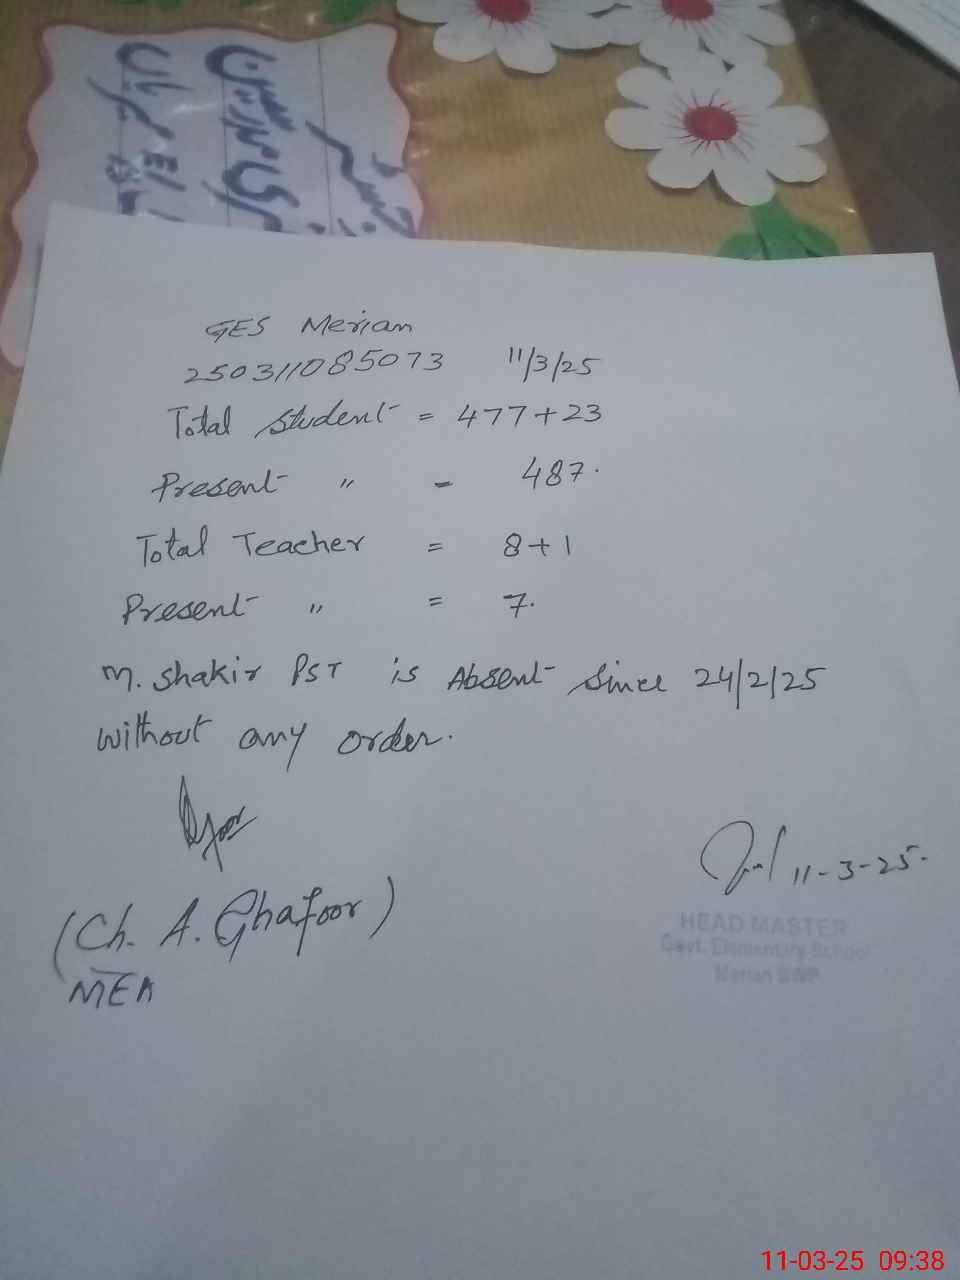 GES Merian
250311085073 11/3/25
Total Student = 477+23
Present " = 487.
Total Teacher = 8+1
Present " = 7.
M. Shakir PST is Absent Since 24/2/25
without any order.
(Ch. A. Ghafoor)
MEA
11-3-25.
HEAD MASTER
Govt. Elementary School
Merian BWP
11-03-25 09:38